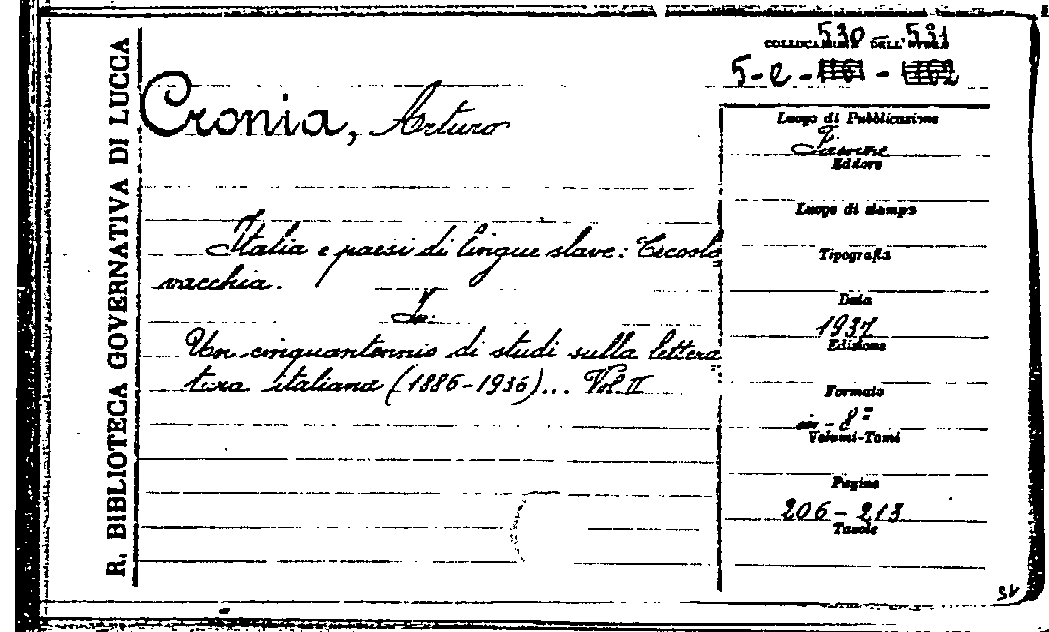 R. BIBLIOTECA GOVERNATIVA DI LUCCA
530 - 531
COLLOCAZIONE DELL'OPERA
5-e - -
Cronia, Arturo
Italia e paesi di lingue slave: Cecoslo
vacchia.
In:
Un cinquantennio di studi sulla lettera
tura italiana (1886-1936)... Vol. II
Luogo di Pubblicazione
Firenze
Editore
Luogo di stampa
Tipografia
Data
1937
Edizione
Formato
in-8º
Volumi-Tomi
Pagine
206-213
Tavole